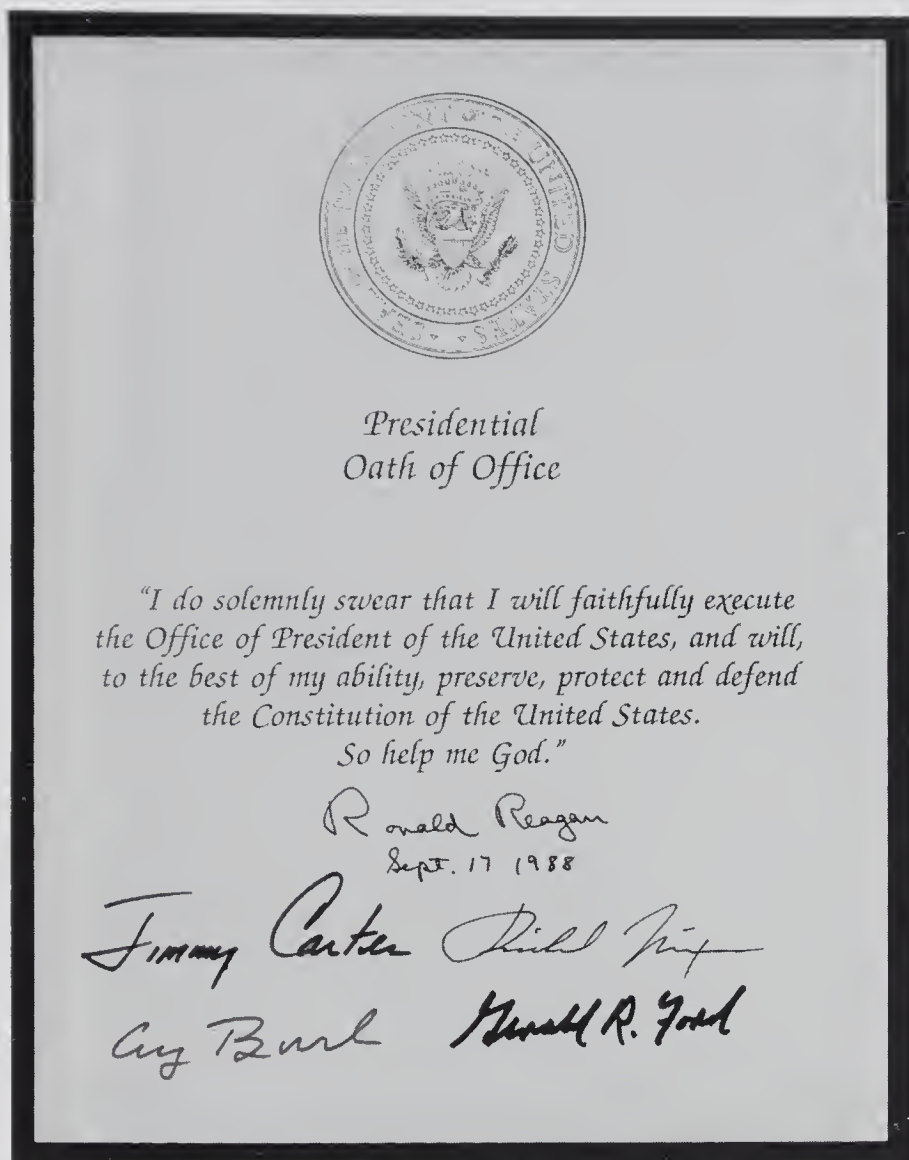 SEAL OF THE PRESIDENT OF THE UNITED STATES
Presidential
Oath of Office
“I do solemnly swear that I will faithfully execute
the Office of President of the United States, and will,
to the best of my ability, preserve, protect and defend
the Constitution of the United States.
So help me God.”
Ronald Reagan
Sept. 17 1988
Jimmy Carter Richard Nixon
Gy Bush Gerald R. Ford